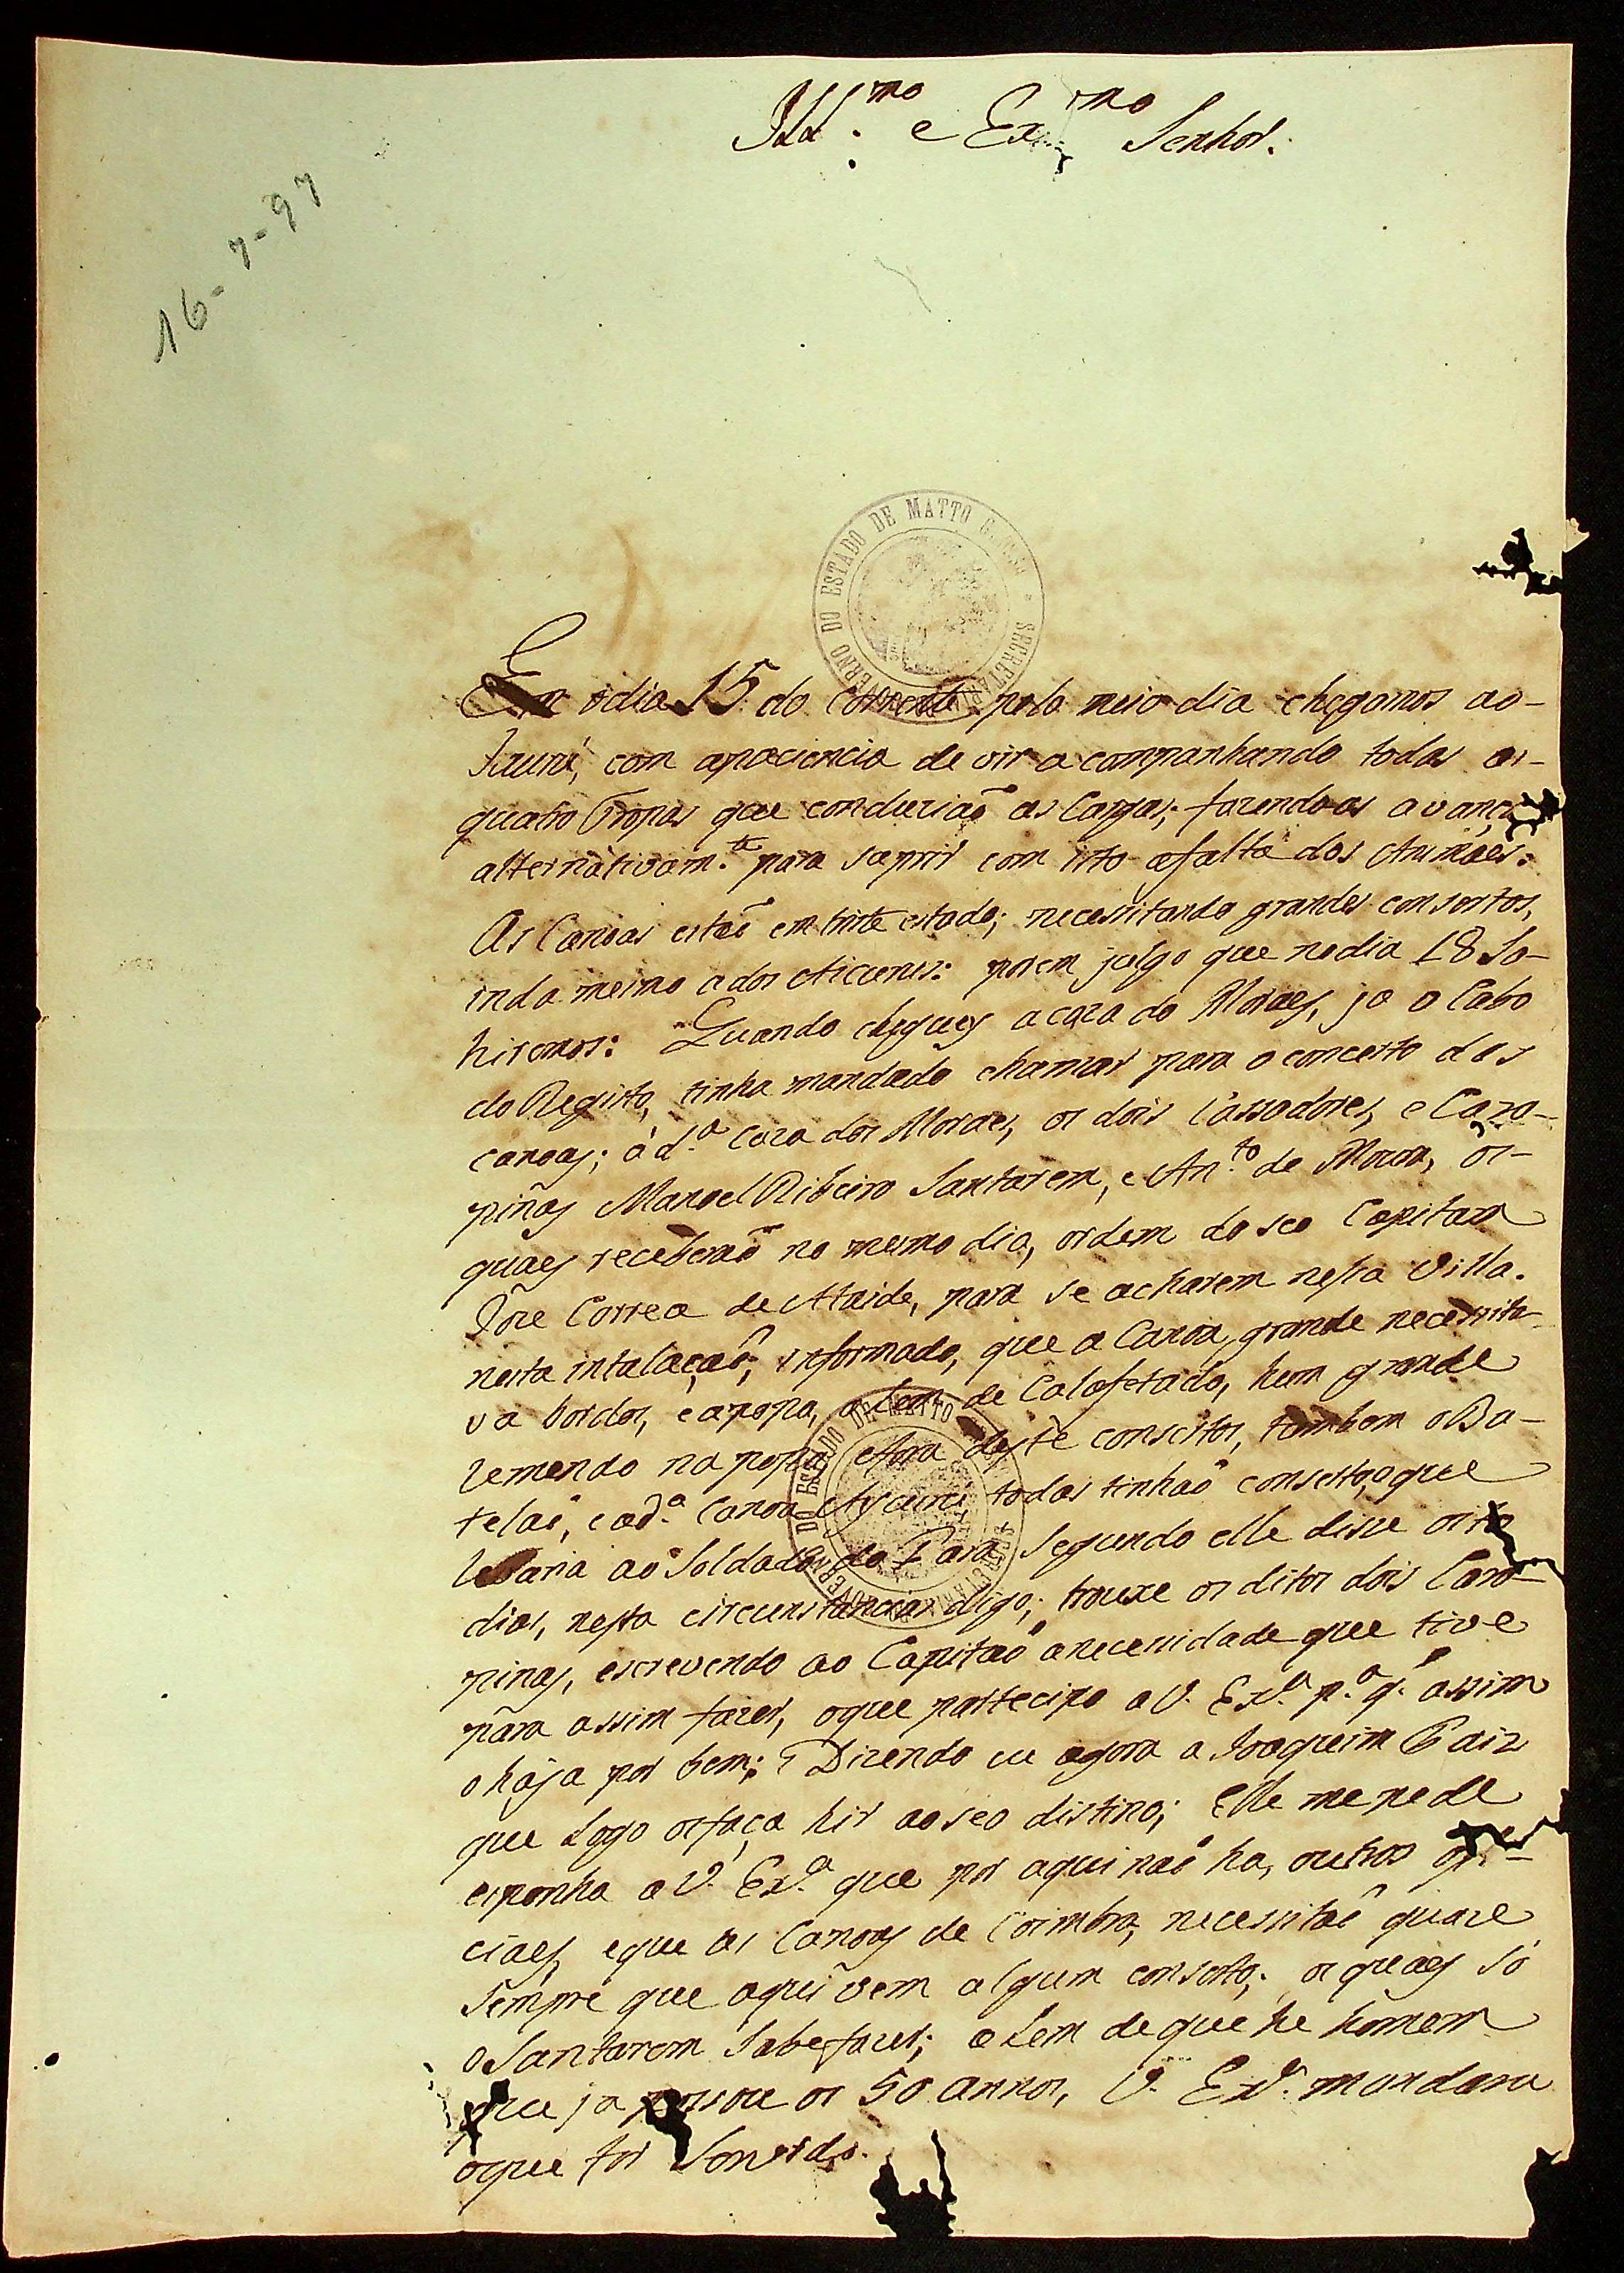 Ill.mo e Ex.mo Senhor.
16-7-97
GOVERNO DO ESTADO DE MATTO GROSSO * SECRETARIA
Em o dia 15 do Corrente pelo meio dia chegamos ao-
Jaurú, com apaciencia de vir acompanhando todas as-
quatro Tropas que conduziaõ as Cargas; fazendo as avançar
alternativam.te para suprir com isto afalta dos Animaes.
As Canoas estaõ em triste estado; necessitando grandes consertos,
inda mesmo a dos Aicurus: porem julgo que nodia 18 Sa-
hiremos: Quando cheguey acaza do Moraes, ja o Cabo
do Registo, tinha mandado chamar para o concerto das
canoas; á d.a Caza dos Moraes, os dois Cassadores, e Cara-
pinas Manoel Ribeiro Santarem, e An.to de Moura, os-
quaes receberaõ no mesmo dia, ordem do seo Capitam
Joze Correa de Ataide, para se acharem nessa Villa.
nesta intalaçaõ; informado, que a Canoa grande necessita-
va bordos, e apopa, alem de Calafetado, hum grande
remendo na popa fora deste consertos, tambem o Ba-
telaõ, e a d.a Canoa Aycurú, todas tinhaõ conserto, oque
levaria ao Soldado do Pará Segundo elle disse oito
dias, nesta circunstancias digo; trouxe os ditos dois Cara-
pinas, escrevendo ao Capitaõ anecessidade que tive
para assim fazer, oque partecipo a V. Ex.a p.a q.' assim
o haja por bem; Dizendo eu agora a Joaquim Paiz
que Logo osfaça hir ao seo distino; elle me pede
esponha a V. Ex.a que por aqui naõ ha, outros ofi-
ciaes, eque as Canoas de Coimbra, necessitaõ quaze
sempre que aqui vem algum conserto; os quaes só
o Santarem Sabe fazer; a Lem de que he homem
que ja passou os 50 annos, V. Ex.a mandara
oque for Servido.